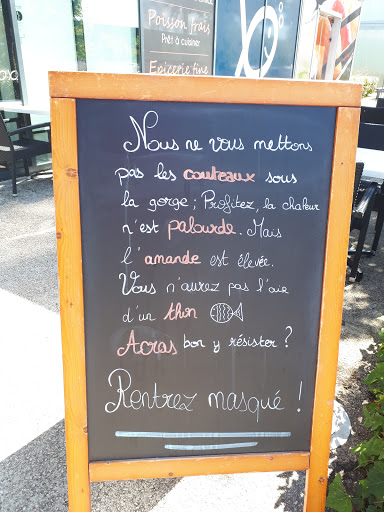 Poisson frais
Prêt à cuisiner
Epicerie fine
Nous ne vous mettons
pas les couteaux sous
la gorge ; Profitez, la chaleur
n'est palourde. Mais
l'amande est élevée.
Vous n'aurez pas l'air
d'un thon
Acras bon y résister ?
Rentrez masqué !